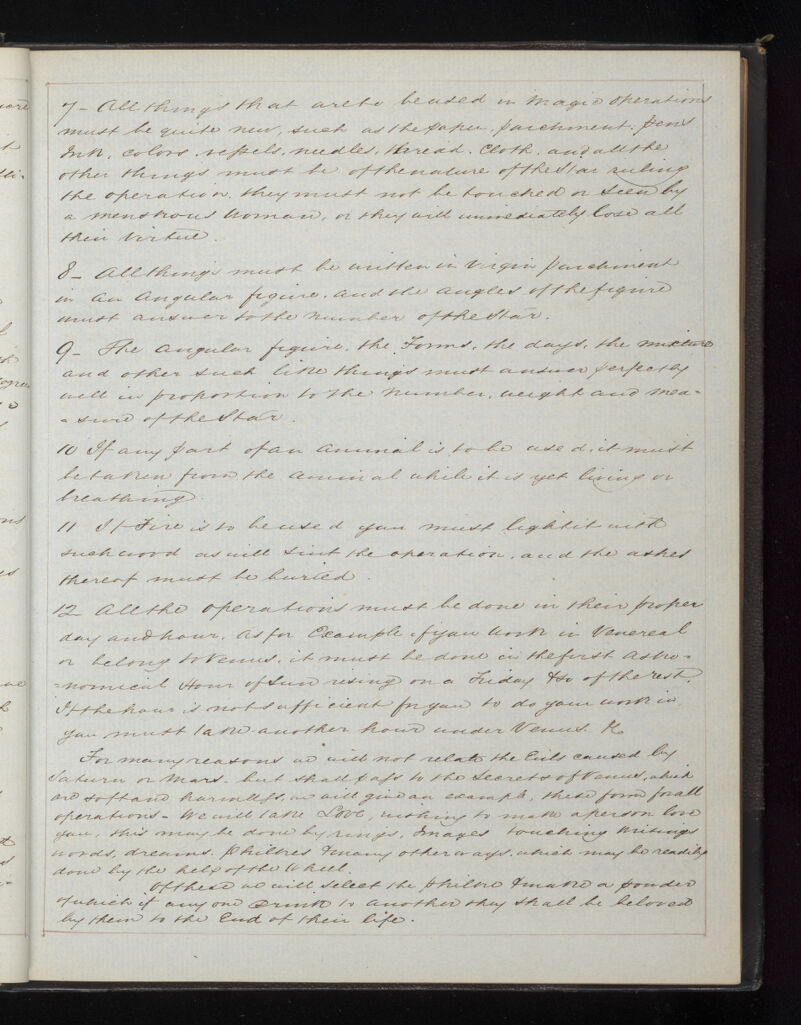 7 - All things that are to be used in Magic operations
must be quite new, such as the paper, parchment, pens
Ink, colors, vessels, needles, thread, Cloth, and all the
other things must be of the nature of the Star ruling
the operation. they must not be touched or seen by
a menstrous Woman, or they will immediately lose all
their Virtue.
8 - All things must be written in Virgin parchment
in an Angular figure, and the angles of the figure
must answer to the number of the Star.
9 - The Angular figure, the Forms, the days, the mixture
and other such like things must answer perfectly
well in proportion to the number, weight and mea-
-sure of the Star.
10 If any part of an Animal is to be used, it must
be taken from the Animal while it is yet living or
breathing.
11 If Fire is to be used you must light it with
such wood as will suit the operation, and the ashes
thereof must be buried.
12 All the operations must be done in their proper
day and hour, As for Example if you Work in Venereal
or belong to Venus, it must be done in the first Astro-
-nomical Hour of Sun rising on a Friday & so of the rest.
If the hour is not sufficient for you to do your work in
you must take another hour under Venus. &c
For many reasons we will not relate the Evils caused by
Saturn or Mars - but shall pass to the Secrets of Venus, which
are soft and harmless, we will give an example, these form for all
operations - We will take Love, wishing to make a person love
you, this may be done by rings, Images touching Writings
words, dreams, Philtres & many other ways, which may be readily
done by the help of the Wheel.
Of these we will select the philtre & make a powder
of which if any one Drink to another they shall be beloved
by them to the End of their life.